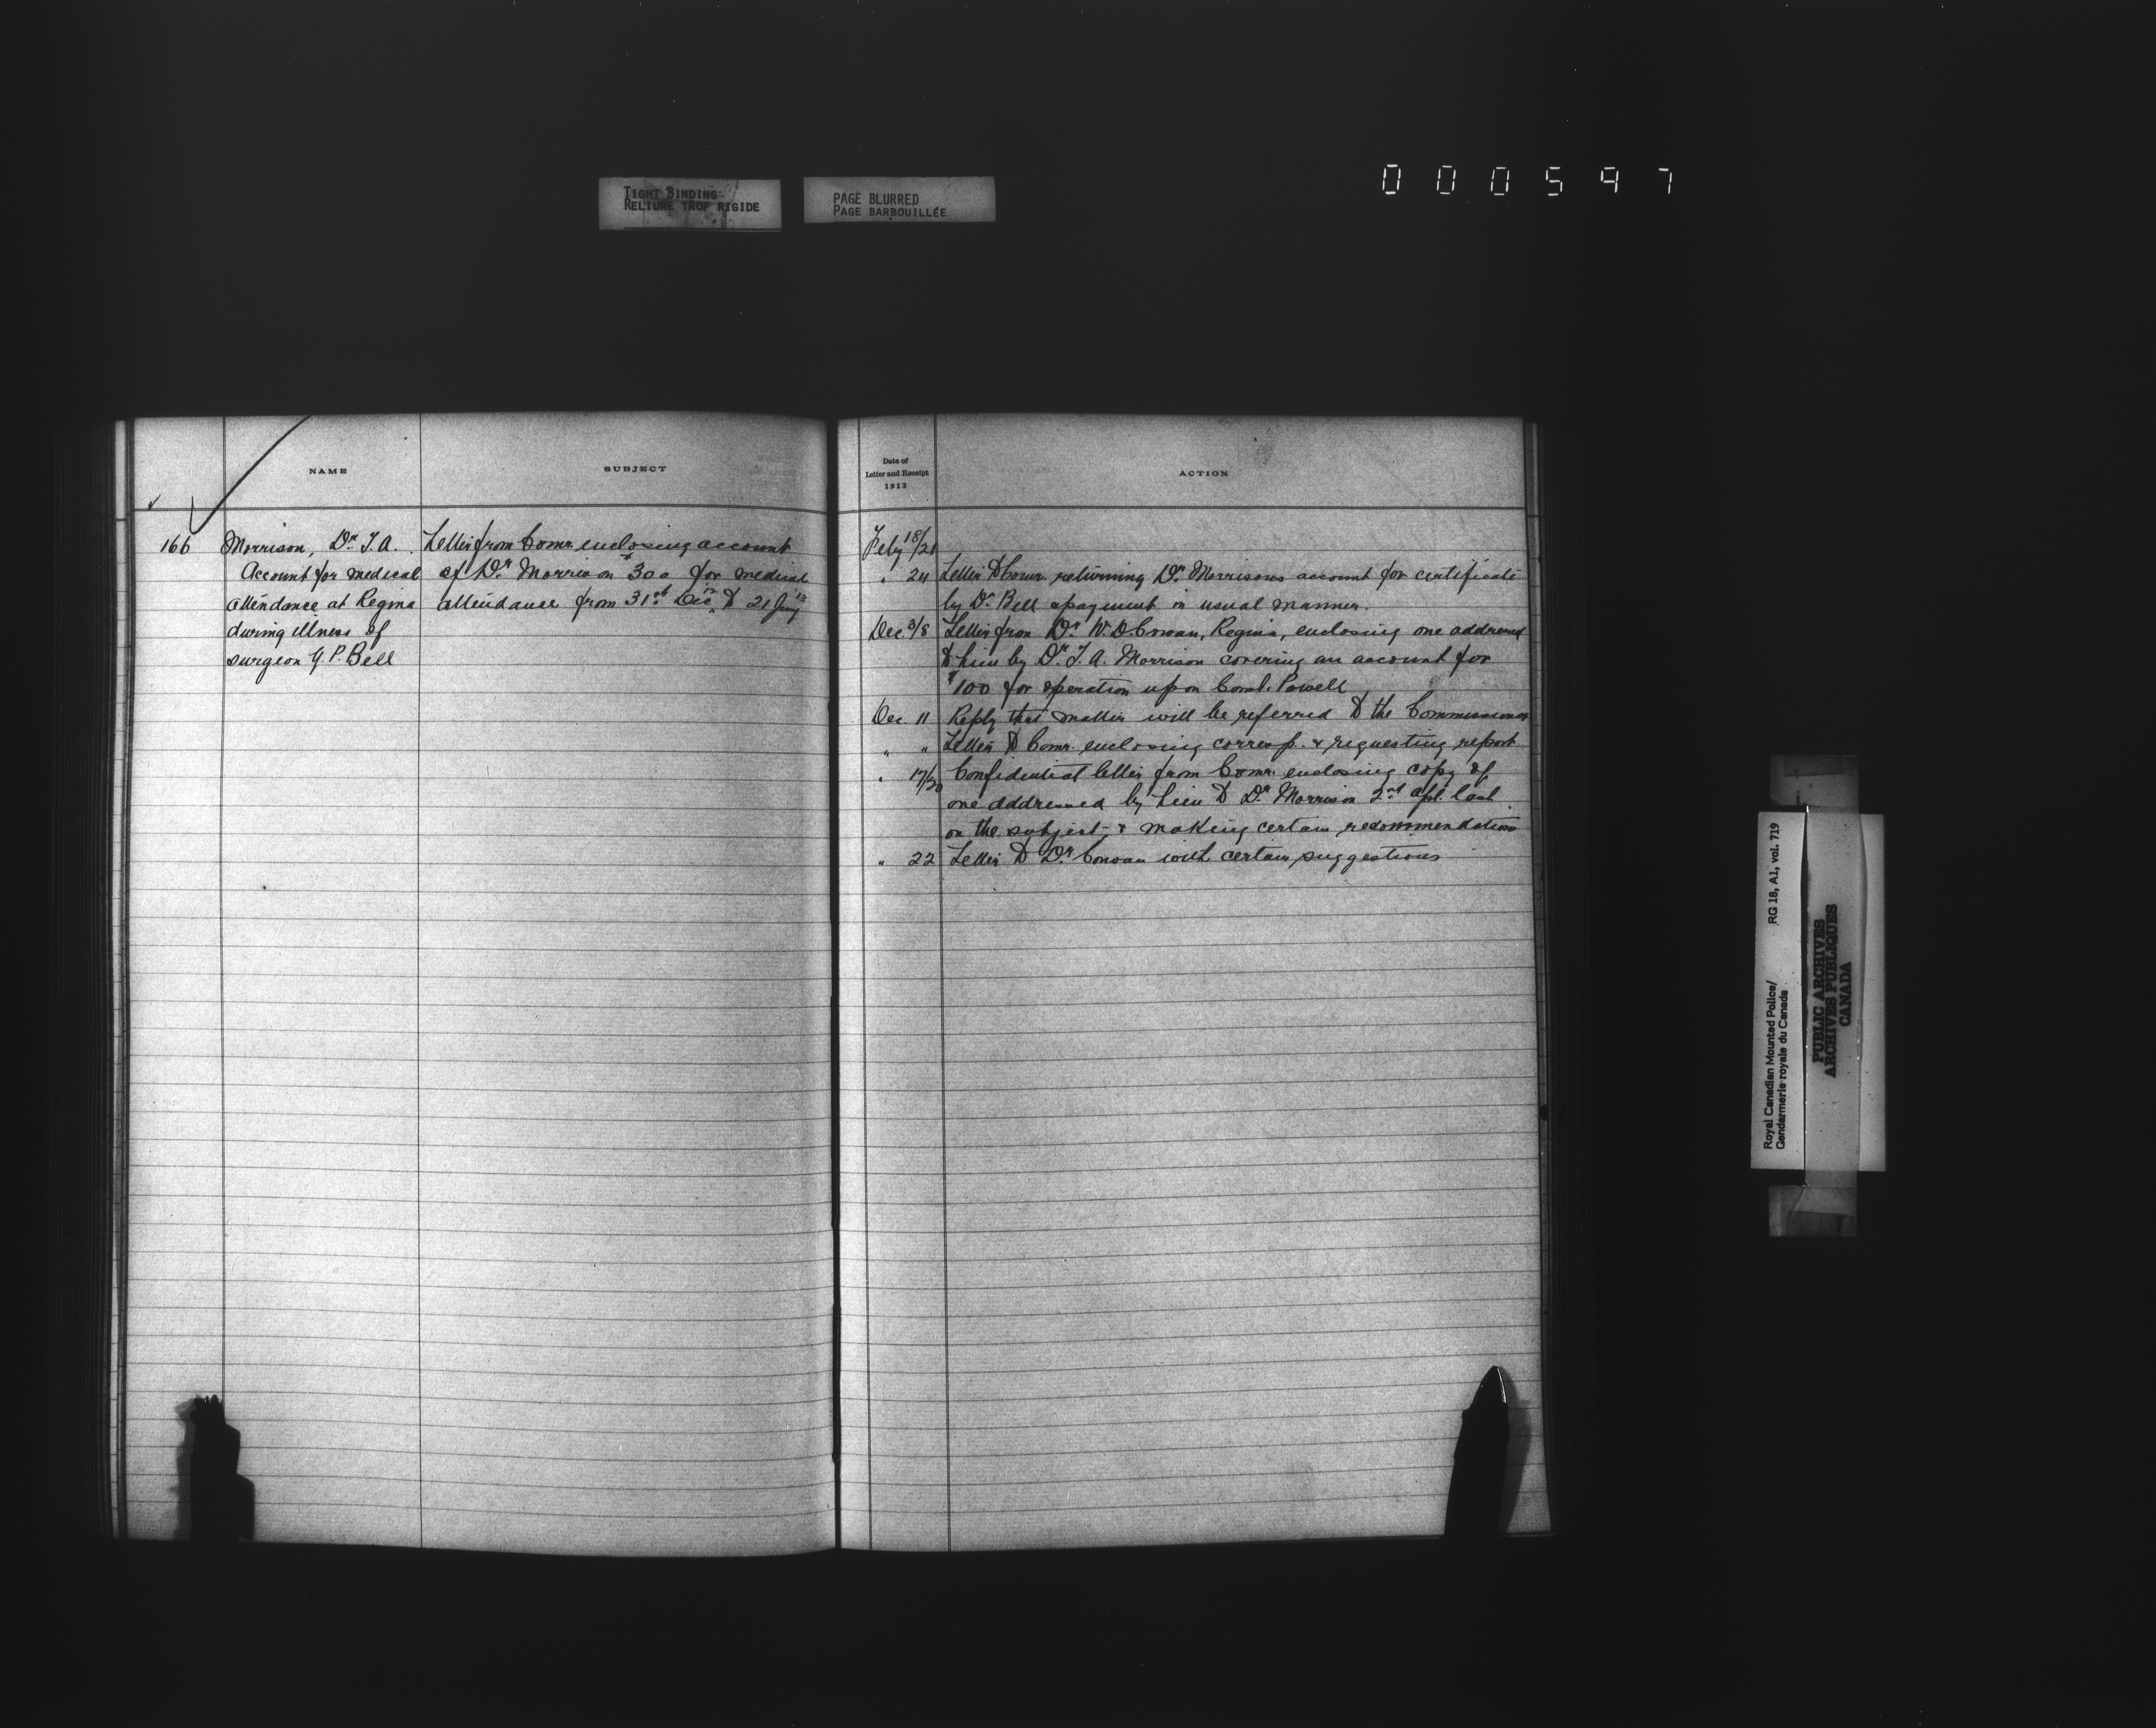 TIGHT BINDING
RELIURE TROP RIGIDE
PAGE BLURRED
PAGE BARBOUILLÉE
000597
NAME
SUBJECT
166
Morrison, Dr. T. A.
Account for medical
attendance at Regina
during illness of
surgeon G. P. Bell
Letter from Comr. enclosing account
of Dr. Morrison $300 for medical
attendance from 31st Dec 12 to 21 Jany 13
Date of
Letter and Receipt
1913
ACTION
Feby 18/21
" 24 Letter to Comr. returning Dr. Morrisons account for certificate
by Dr. Bell & payment in usual manner.
Dec 3/8 Letter from Dr. W. D. Cowan, Regina, enclosing one addressed
to him by Dr. T. A. Morrison covering an account for
$100 for operation upon Const. Powell
Dec 11 Reply that matter will be referred to the Commissioner
" " Letter to Comr. enclosing corresp. & requesting report
" 17/20 Confidential letter from Comr. enclosing copy of
one addressed by him to Dr. Morrison 2nd Apl. last
on the subject, & making certain recommendations
" 22 Letter to Dr. Cowan with certain suggestions
Royal Canadian Mounted Police/
Gendarmerie royale du Canada
RG 18, A1, vol. 719
PUBLIC ARCHIVES
ARCHIVES PUBLIQUES
CANADA